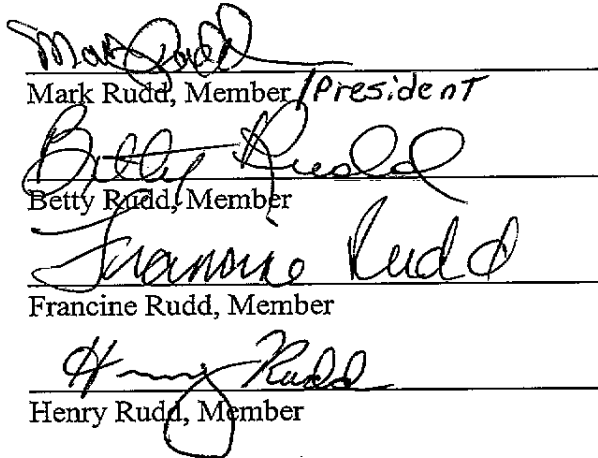 Mark Rudd
Mark Rudd, Member /President
Betty Rudd
Betty Rudd, Member
Francine Rudd
Francine Rudd, Member
Henry Rudd
Henry Rudd, Member